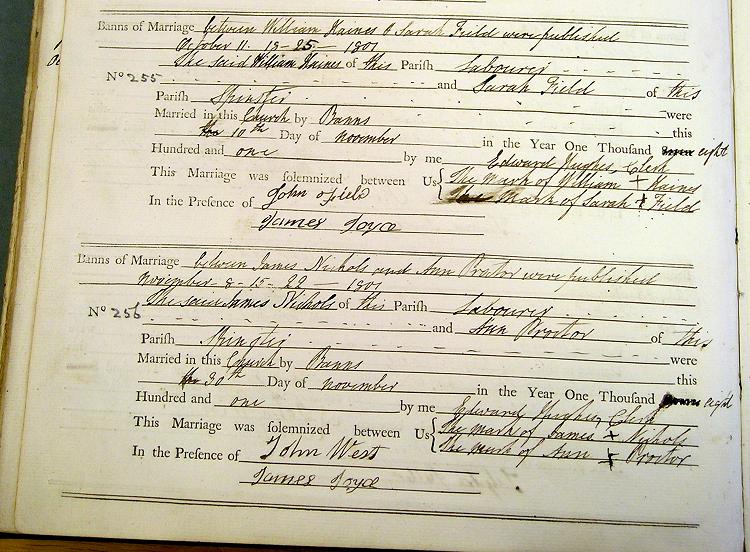 Banns of Marriage between William Haines & Sarah Field were published
October 11 - 18 - 25 - 1801
The said William Haines of this Parish Labourer
No 255 and Sarah Field of this
Parish Spinster
Married in this Church by Banns were
this 10th Day of November in the Year One Thousand eight
Hundred and one by me Edward Hughes, Clerk
This Marriage was solemnized between Us { The Mark of William + Haines
The Mark of Sarah + Field
In the Presence of John Field
James Joyce
Banns of Marriage between James Nichols and Ann Proctor were published
November - 8 - 15 - 22 - 1801
The said James Nichols of this Parish Labourer
No 256 and Ann Proctor of this
Parish Spinster
Married in this Church by Banns were
this 30th Day of November in the Year One Thousand eight
Hundred and one by me Edward Hughes, Clerk
This Marriage was solemnized between Us { The Mark of James + Nichols
The mark of Ann + Proctor
In the Presence of John West
James Joyce